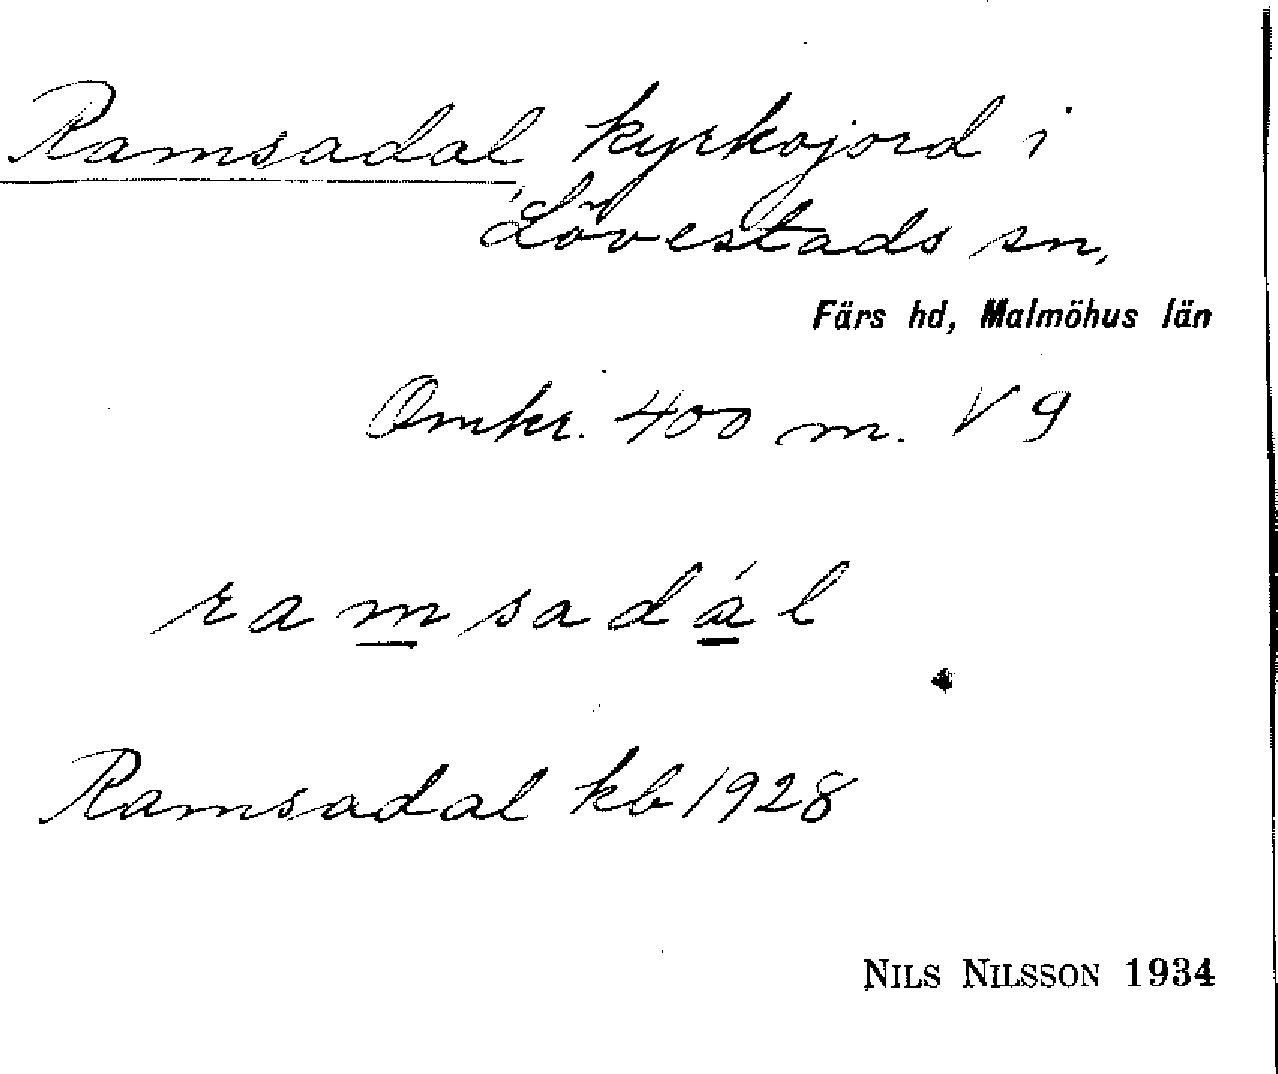 Ramsadal kyrkojord i
Lövestads sn,
Färs hd, Malmöhus län
Omkr. 400 m. V 9
ramsadál
Ramsadal kb 1928
NILS NILSSON 1934